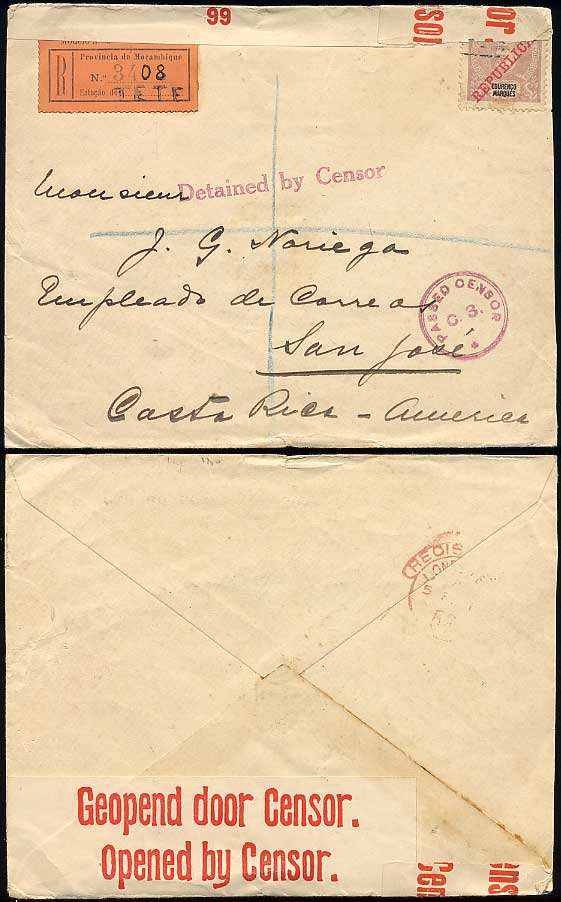 99
Censor.
Modelo
Provincia de Moçambique
R N.º 3408
Estação de TETE
REPUBLICA
LOURENÇO
MARQUES
Detained by Censor
Monsieur
J. G. Noriega
Empleado de Correos
San José
Costa Rica - America
PASSED CENSOR
C. 3.
REGIS
LOND
5
Geopend door Censor.
Opened by Censor.
Cen
ens